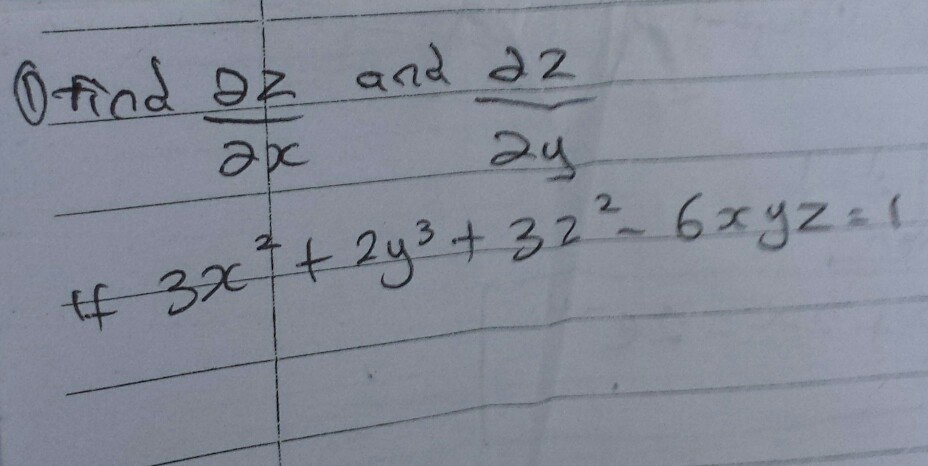 ① find ∂z/∂x and ∂z/∂y
If 3x² + 2y³ + 3z² - 6xyz = 1